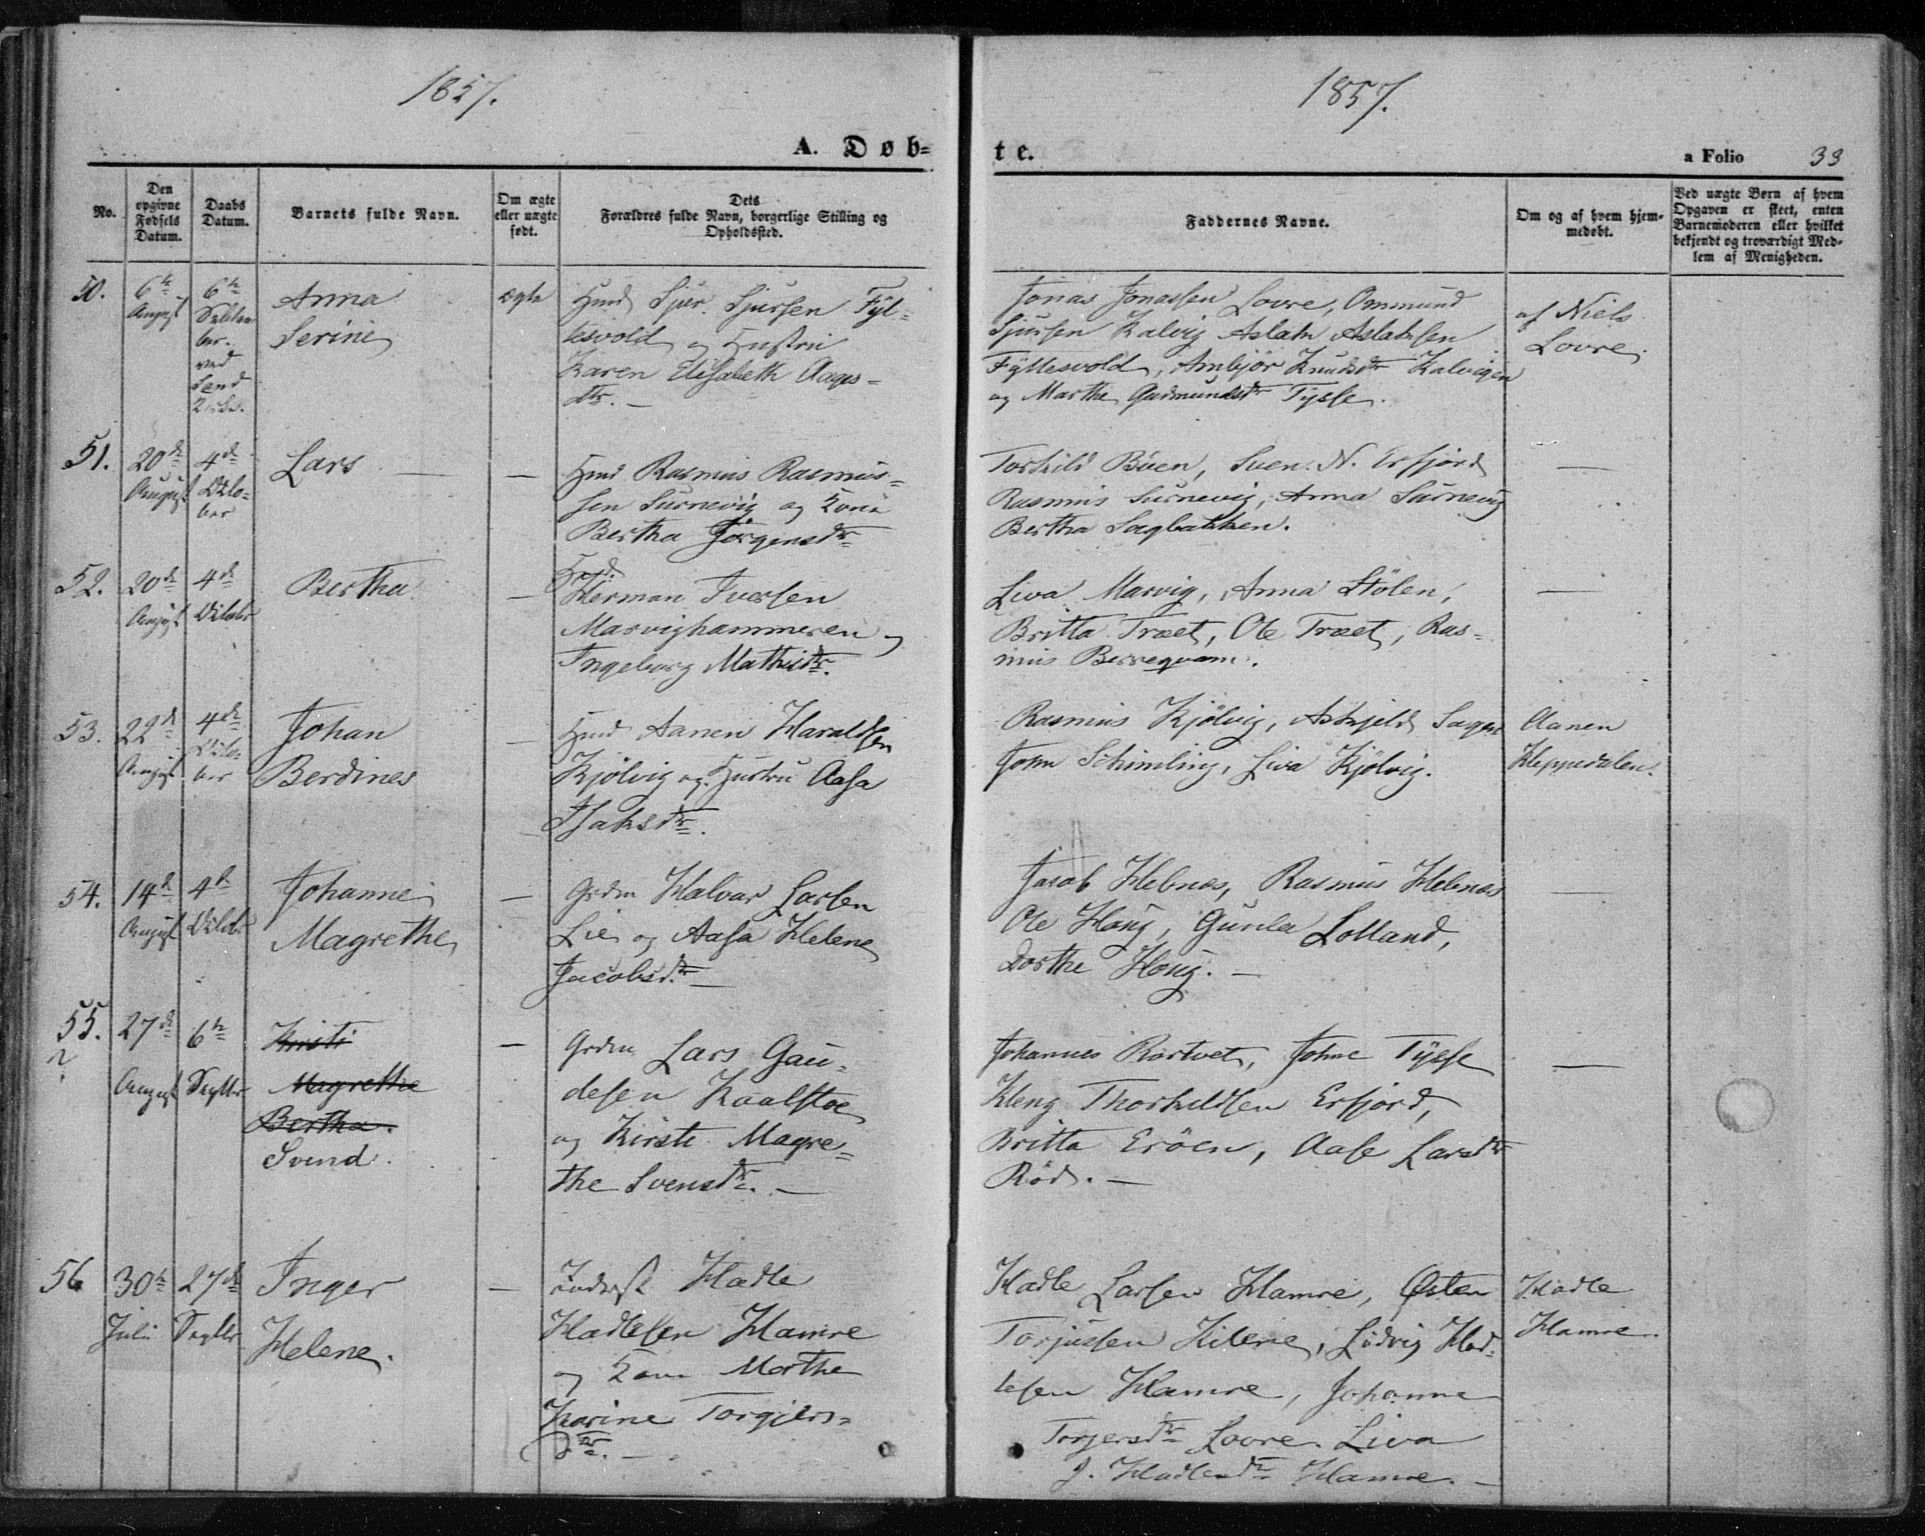 1857.
1857.
A. Døb-
te.
a Folio 33
No.
Den opgivne Fødsels Datum.
Daabs Datum.
Barnets fulde Navn.
Om ægte eller uægte født.
Dets Forældres fulde Navn, borgerlige Stilling og Opholdssted.
Faddernes Navne.
Om og af hvem hjem-
medøbt.
Ved uægte Børn af hvem
Opgaven er skeet, enten
Barnemoderen eller hvilket
bekjendt og troværdigt Med-
lem af Menigheden.
50.
6te
August
6te
ved
Anna
Serine
ægte
Husd Sjur Sjursen Fyl-
lesvold og Hustru
Karen Elisabeth Aages-
dtr. —
Jonas Jonassen Lovre, Ommund
Sjursen Kalvig Aslak Aslaksen
Fyllesvold, Anbjør Knudsdtr Kalvigen
og Marthe Gudmundsdtr Tysse.
af Niels
Lovre.
51.
20de
August
4de
Octo-
ber
Lars —
—
Husd Rasmus Rasmus-
sen Surnevig og Kone
Bertha Jørgensdtr
Torkild Bøen, Sven N. Erfjord
Rasmus Surnevig, Anna Surnevig
Bertha Sagbakken.
—
52.
20de
August
4de
October
Bertha
—
Husd.
Herman Iversen
Marvighammeren og
Ingeborg Mathisdtr.
Liva Marvig, Anna Stölen,
Britta Træet, Ole Træet, Ras-
mus Berrequam.
—
53.
22de
August
4de
Octo-
ber
Johan
Berdines
—
Husd Aanen Haraldsen
Kjölvig og Hustru Aasa
Isaksdtr.
Rasmus Kjölvig, Askjeld Sagen
John Schimling, Liva Kjölvig.
Aanen
Kleppedalen.
54.
14de
August
4de
October
Johanne
Magrethe
—
Grdm Halvar Larsen
Lie og Aasa Helene
Jacobsdtr —
Jacob Helnæs, Rasmus Helnæs
Ole Houg, Gunla Lolland,
Dorthe Houg. —
—
55.
27de
August
6te
Septbr
Kristi
Magrethe
Bertha.
Svend.
—
Grdm Lars Gau-
desen Kaalstøe
og Kirste Magre-
the Svensdtr. —
Johannes Rørtvet, John Tysse
Kleng Thorkildsen Erfjord,
Britta Eröen, Aase Larsdtr
Röd. —
—
56
30te
Juli
27de
Septbr
Inger
Helene.
—
Inderst Hadle
Hadlesen Hamre
og Kone Marthe
Karine Torgiers-
dtr. —
Hadle Larsen Hamre, Østen
Torjussen Hilene, Ludvig Had-
lesen Hamre, Johanne
Torjersdtr Lovre. Liva
J. Hadlesdtr Hamre. —
Hadle
Hamre.